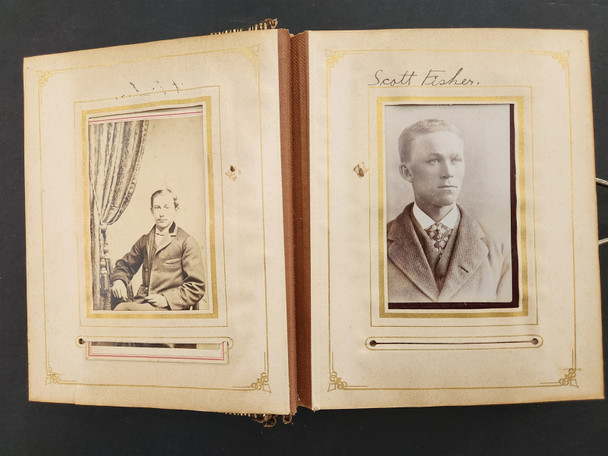 Scott Fisher.